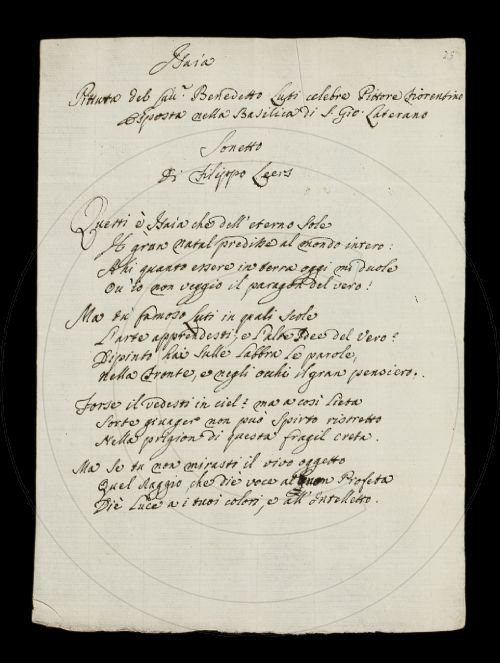 25
Isaia
Pittura del Cau.r Benedetto Luti celebre Pittore Fiorentino
esposta nella Basilica di S. Gio. Laterano
Sonetto
Di Filippo Leers
Questi è Isaia che dell' eterno Sole
Il gran natal predisse al mondo intero:
Ahi quanto essere in terra oggi mi duole
Ov' io non veggio il paragon del vero!
Ma tu famoso Luti in quali Scole
L'arte apprendesti, e l'alte Idee del Vero?
Dipinto hai sulle labbra le parole,
Nella Fronte, e negli occhi il gran pensiero.
Forse il vedesti in ciel? ma a così lieta
Sorte giunger non può Spirto ristretto
Nella prigion di questa fragil creta.
Ma se tu non mirasti il vivo oggetto
Quel Raggio, che diè voce al Profeta
Diè Luce a i tuoi colori, e all' Intelletto.